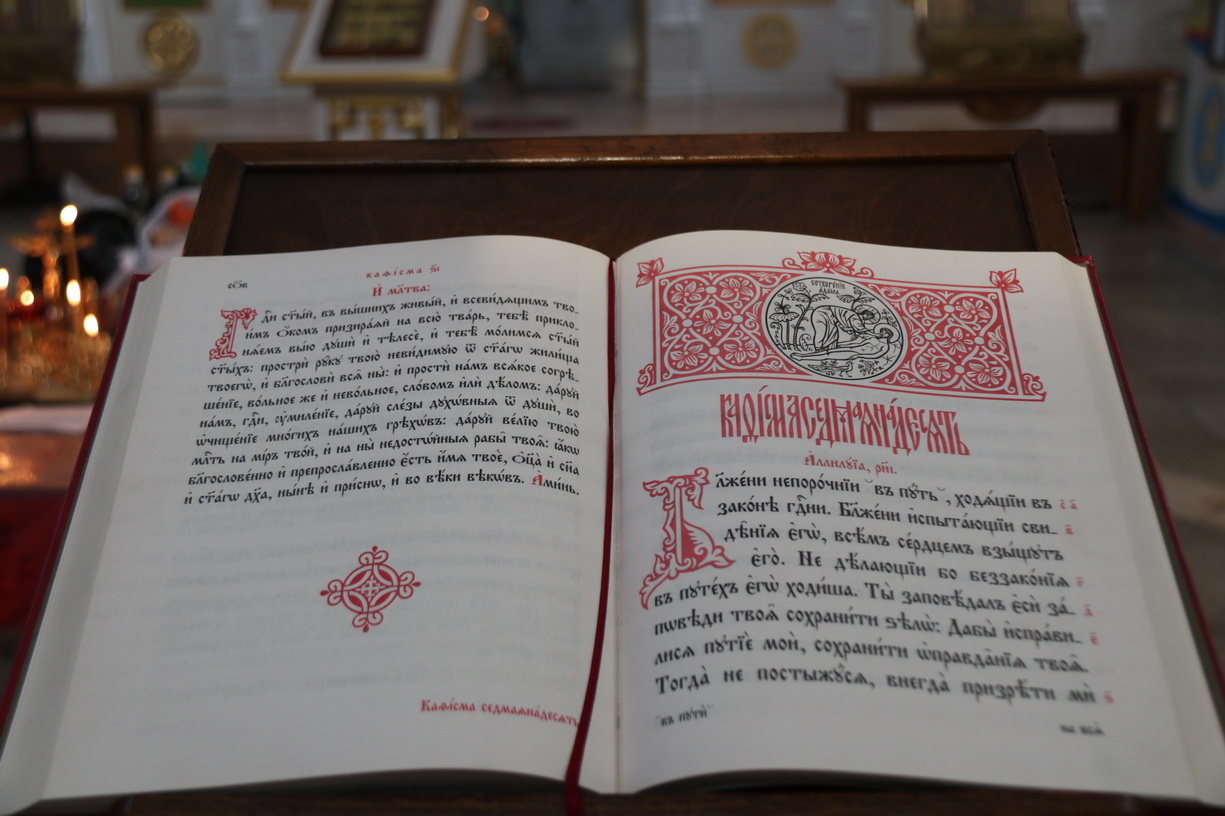 каѳі́сма ѕ҃і
И҆ мл҃тва:
Гдⷭ҇и ст҃ы́й, въ вы́шнихъ живы́й, и҆ всеви́дѧщимъ тво-
и́мъ ѻ҆́комъ призира́ѧй на всю̀ тва́рь, тебѣ̀ прикло-
нѧ́емъ вы́ю дꙋшѝ и҆ тѣлесѐ, и҆ тебѣ̀ мо́лимсѧ ст҃ы́й
ст҃ы́хъ: прострѝ рꙋ́кꙋ твою̀ неви́димꙋю ѿ ст҃а́гѡ жили́ща
твоегѡ̀, и҆ бл҃гословѝ всѧ̑ ны̀: и҆ простѝ на́мъ всѧ́кое согрѣ-
ше́нїе, во́льное же и҆ нево́льное, сло́вомъ и҆лѝ дѣ́ломъ: да́рꙋй
на́мъ, гдⷭ҇и, ᲂу҆миле́нїе, да́рꙋй сле́зы дꙋхѡ́вныѧ ѿ дꙋшѝ, во
ѡ҆чище́нїе мно́гихъ на́шихъ грѣхѡ́въ: да́рꙋй ве́лїю твою̀
мл҃ть на мі́ръ тво́й, и҆ на ны̀ недостѡ́йныѧ рабы̑ твоѧ̑: ꙗ҆́кѡ
бл҃гослове́нно и҆ препросла́вленно є҆́сть и҆́мѧ твоѐ, ѻ҆ц҃а̀ и҆ сн҃а
и҆ ст҃а́гѡ дх҃а, ны́нѣ и҆ при́снѡ, и҆ во вѣ́ки вѣкѡ́въ. А҆ми́нь.
Каѳі́сма седмаѧна́десѧть
сотворенїе
адама
каѳісма седмаѧнадесѧть
А҆ллилꙋ́їа, рн҃і.
Бл҃же́ни непоро́чнїи въ пꙋ́ть, ходѧ́щїи въ
зако́нѣ гдⷭ҇ни. Бл҃же́ни и҆спыта́ющїи сви-
дѣ̑нїѧ є҆гѡ̀, всѣ́мъ се́рдцемъ взы́щꙋтъ
є҆гѡ̀. Не дѣ́лающїи бо беззако́нїѧ
въ пꙋте́хъ є҆гѡ̀ ходи́ша. Ты̀ заповѣ́далъ є҆сѝ за́-
пѡвѣди твоѧ̑ сохрани́ти ѕѣлѡ̀: Дабы̀ и҆спра́ви-
лисѧ пꙋтїѐ моѝ, сохрани́ти ѡ҆правда̑нїѧ твоѧ̑.
Тогда̀ не постыжꙋ́сѧ, внегда̀ призрѣ́ти мѝ
въ пꙋтѝ
на всѧ̑